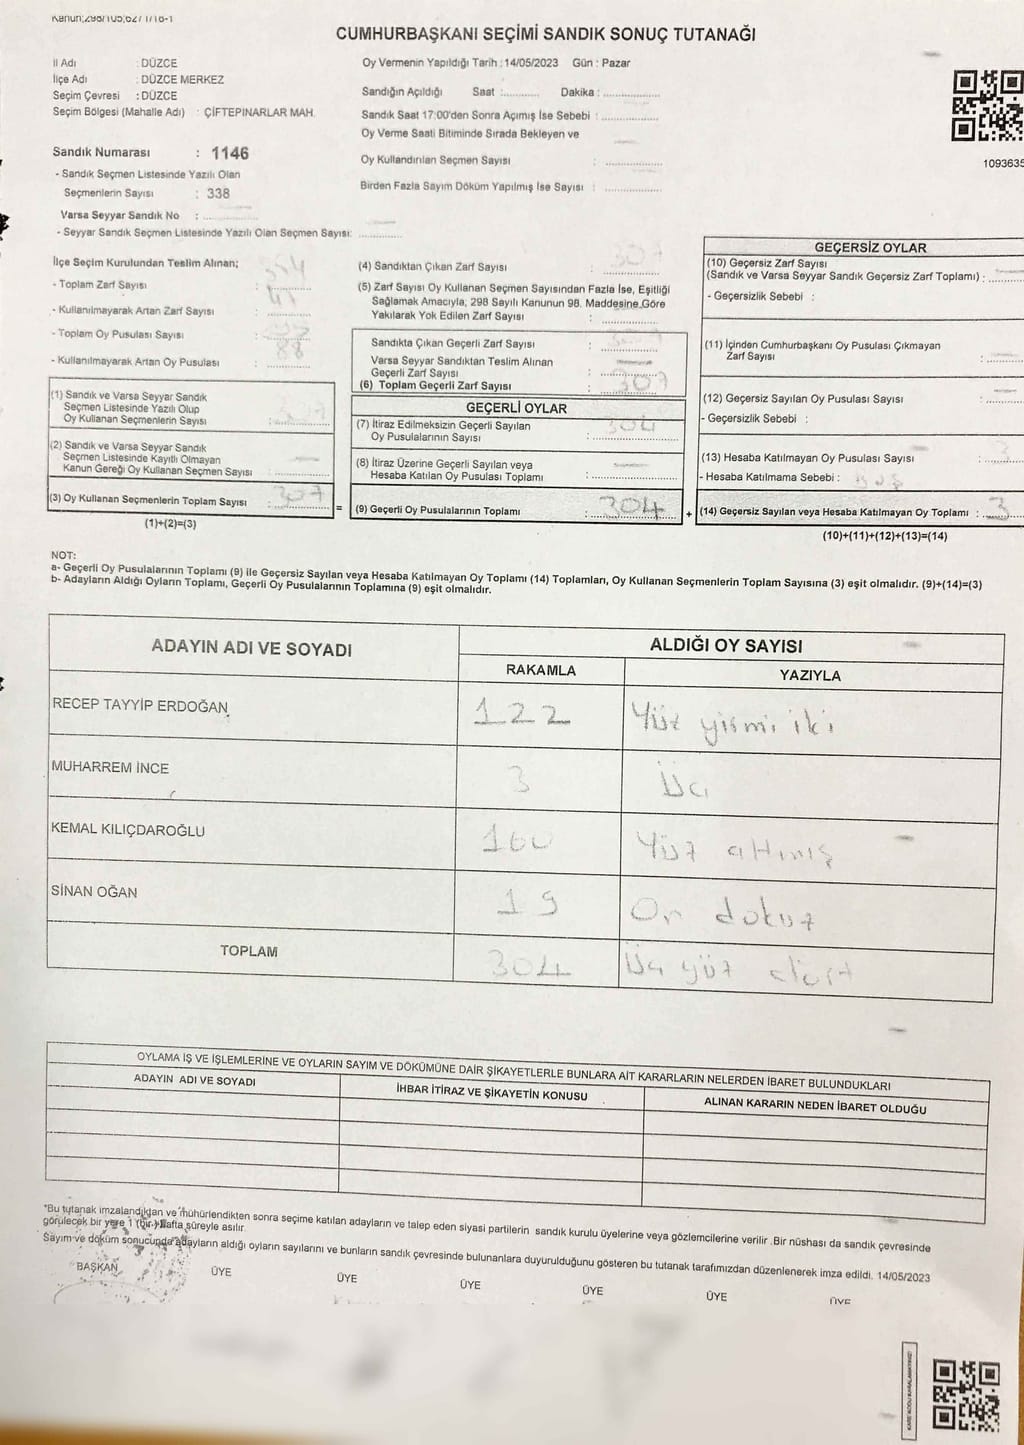 CUMHURBAŞKANI SEÇİMİ SANDIK SONUÇ TUTANAĞI
İl Adı : DÜZCE
İlçe Adı : DÜZCE MERKEZ
Seçim Çevresi : DÜZCE
Seçim Bölgesi (Mahalle Adı) : ÇİFTEPINARLAR MAH.
Sandık Numarası : 1146
- Sandık Seçmen Listesinde Yazılı Olan
Seçmenlerin Sayısı : 338
Varsa Seyyar Sandık No :
- Seyyar Sandık Seçmen Listesinde Yazılı Olan Seçmen Sayısı:
Oy Vermenin Yapıldığı Tarih : 14/05/2023 Gün : Pazar
Sandığın Açıldığı Saat : Dakika :
Sandık Saat 17:00'den Sonra Açımış İse Sebebi :
Oy Verme Saati Bitiminde Sırada Bekleyen ve
Oy Kullandırılan Seçmen Sayısı :
Birden Fazla Sayım Döküm Yapılmış İse Sayısı :
1093635
İlçe Seçim Kurulundan Teslim Alınan;
- Toplam Zarf Sayısı :
- Kullanılmayarak Artan Zarf Sayısı :
- Toplam Oy Pusulası Sayısı :
- Kullanılmayarak Artan Oy Pusulası : 88
(1) Sandık ve Varsa Seyyar Sandık
Seçmen Listesinde Yazılı Olup
Oy Kullanan Seçmenlerin Sayısı : 307
(2) Sandık ve Varsa Seyyar Sandık
Seçmen Listesinde Kayıtlı Olmayan
Kanun Gereği Oy Kullanan Seçmen Sayısı :
(3) Oy Kullanan Seçmenlerin Toplam Sayısı : 307
(1)+(2)=(3)
(4) Sandıktan Çıkan Zarf Sayısı : 307
(5) Zarf Sayısı Oy Kullanan Seçmen Sayısından Fazla İse, Eşitliği
Sağlamak Amacıyla; 298 Sayılı Kanunun 98. Maddesine Göre
Yakılarak Yok Edilen Zarf Sayısı :
Sandıkta Çıkan Geçerli Zarf Sayısı : 307
Varsa Seyyar Sandıktan Teslim Alınan
Geçerli Zarf Sayısı :
(6) Toplam Geçerli Zarf Sayısı : 307
GEÇERLİ OYLAR
(7) İtiraz Edilmeksizin Geçerli Sayılan
Oy Pusulalarının Sayısı : 304
(8) İtiraz Üzerine Geçerli Sayılan veya
Hesaba Katılan Oy Pusulası Toplamı :
= (9) Geçerli Oy Pusulalarının Toplamı : 304
GEÇERSİZ OYLAR
(10) Geçersiz Zarf Sayısı
(Sandık ve Varsa Seyyar Sandık Geçersiz Zarf Toplamı) :
- Geçersizlik Sebebi :
(11) İçinden Cumhurbaşkanı Oy Pusulası Çıkmayan
Zarf Sayısı :
(12) Geçersiz Sayılan Oy Pusulası Sayısı :
- Geçersizlik Sebebi :
(13) Hesaba Katılmayan Oy Pusulası Sayısı : 3
- Hesaba Katılmama Sebebi : BOŞ
+ (14) Geçersiz Sayılan veya Hesaba Katılmayan Oy Toplamı : 3
(10)+(11)+(12)+(13)=(14)
NOT:
a- Geçerli Oy Pusulalarının Toplamı (9) ile Geçersiz Sayılan veya Hesaba Katılmayan Oy Toplamı (14) Toplamları, Oy Kullanan Seçmenlerin Toplam Sayısına (3) eşit olmalıdır. (9)+(14)=(3)
b- Adayların Aldığı Oyların Toplamı, Geçerli Oy Pusulalarının Toplamına (9) eşit olmalıdır.
ADAYIN ADI VE SOYADI ALDIĞI OY SAYISI
RAKAMLA YAZIYLA
RECEP TAYYİP ERDOĞAN 122 Yüz yirmi iki
MUHARREM İNCE 3 Üç
KEMAL KILIÇDAROĞLU 160 Yüz altmış
SİNAN OĞAN 19 On dokuz
TOPLAM 304 Üç yüz dört
OYLAMA İŞ VE İŞLEMLERİNE VE OYLARIN SAYIM VE DÖKÜMÜNE DAİR ŞİKAYETLERLE BUNLARA AİT KARARLARIN NELERDEN İBARET BULUNDUKLARI
ADAYIN ADI VE SOYADI İHBAR İTİRAZ VE ŞİKAYETİN KONUSU ALINAN KARARIN NEDEN İBARET OLDUĞU
*Bu tutanak imzalandıktan ve mühürlendikten sonra seçime katılan adayların ve talep eden siyasi partilerin sandık kurulu üyelerine veya gözlemcilerine verilir. Bir nüshası da sandık çevresinde
görülecek bir yere 1 (bir) hafta süreyle asılır.
Sayım ve döküm sonucunda adayların aldığı oyların sayılarını ve bunların sandık çevresinde bulunanlara duyurulduğunu gösteren bu tutanak tarafımızdan düzenlenerek imza edildi. 14/05/2023
BAŞKAN ÜYE ÜYE ÜYE ÜYE ÜYE ÜYE